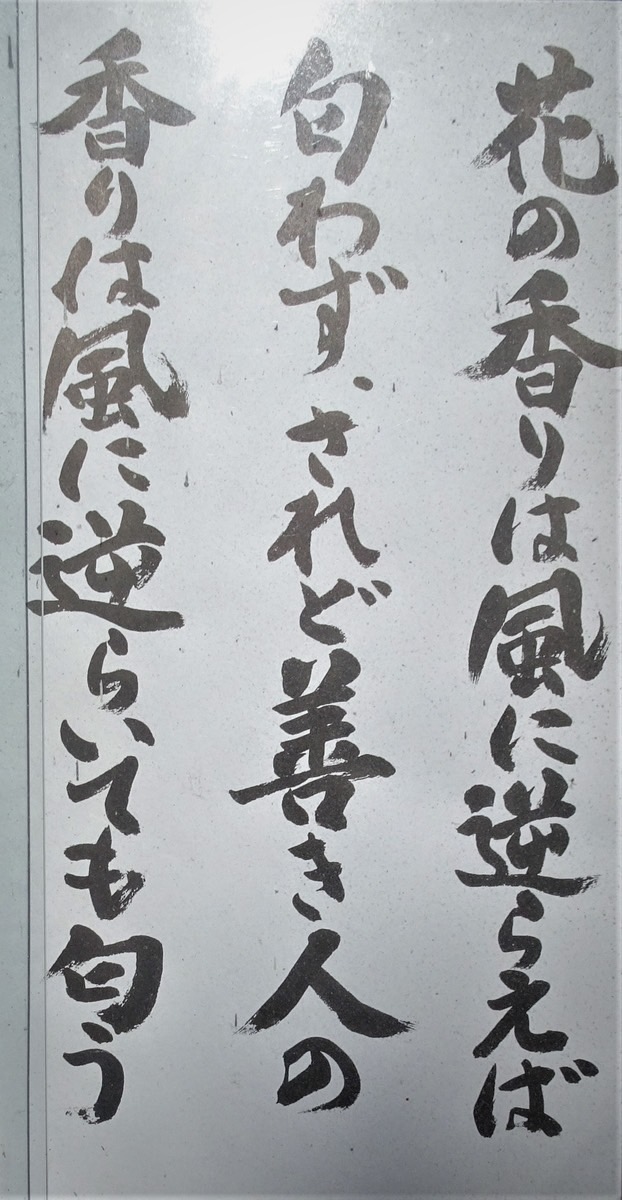 花の香りは風に逆らえば
匂わず、されど善き人の
香りは風に逆らいても匂う